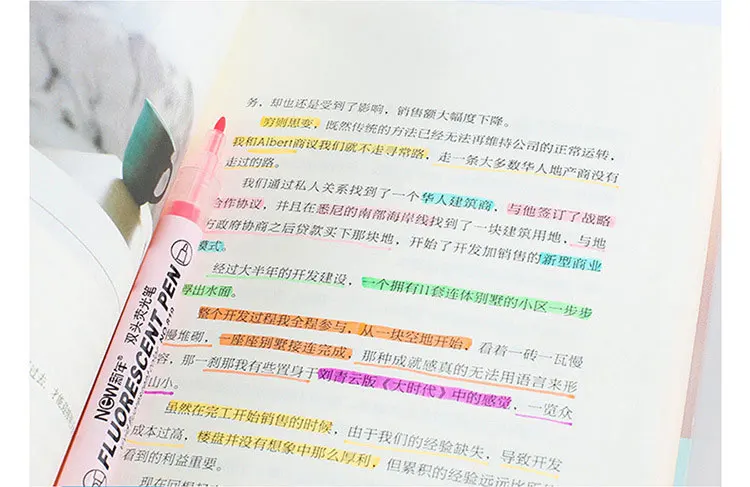 务，却也还是受到了影响，销售额大幅度下降。
穷则思变，既然传统的方法已经无法再维持公司的正常运转，
我和Albert商议我们就不走寻常路，走一条大多数华人地产商没有
走过的路。
我们通过私人关系找到了一个华人建筑商，与他签订了战略
合作协议，并且在悉尼的南部海岸线找到了一块建筑用地，与地
方政府协商之后贷款买下那块地，开始了开发加销售的新型商业
模式。
经过大半年的开发建设，一个拥有11套连体别墅的小区一步步
浮出水面。
整个开发过程我全程参与，从一块空地开始，看着一砖一瓦慢
慢堆砌，一座座别墅接连完成，那种成就感真的无法用语言来形
容，那一刹那我有些置身于刘青云版《大时代》中的感觉，一览众
山小。
虽然在完工开始销售的时候，由于我们的经验缺失，导致开发
成本过高，楼盘并没有想象中那么厚利，但累积的经验远远比所
看到的利益重要。
现在回想起
NEW新年®
双头荧光笔
FLUORESCENT PEN